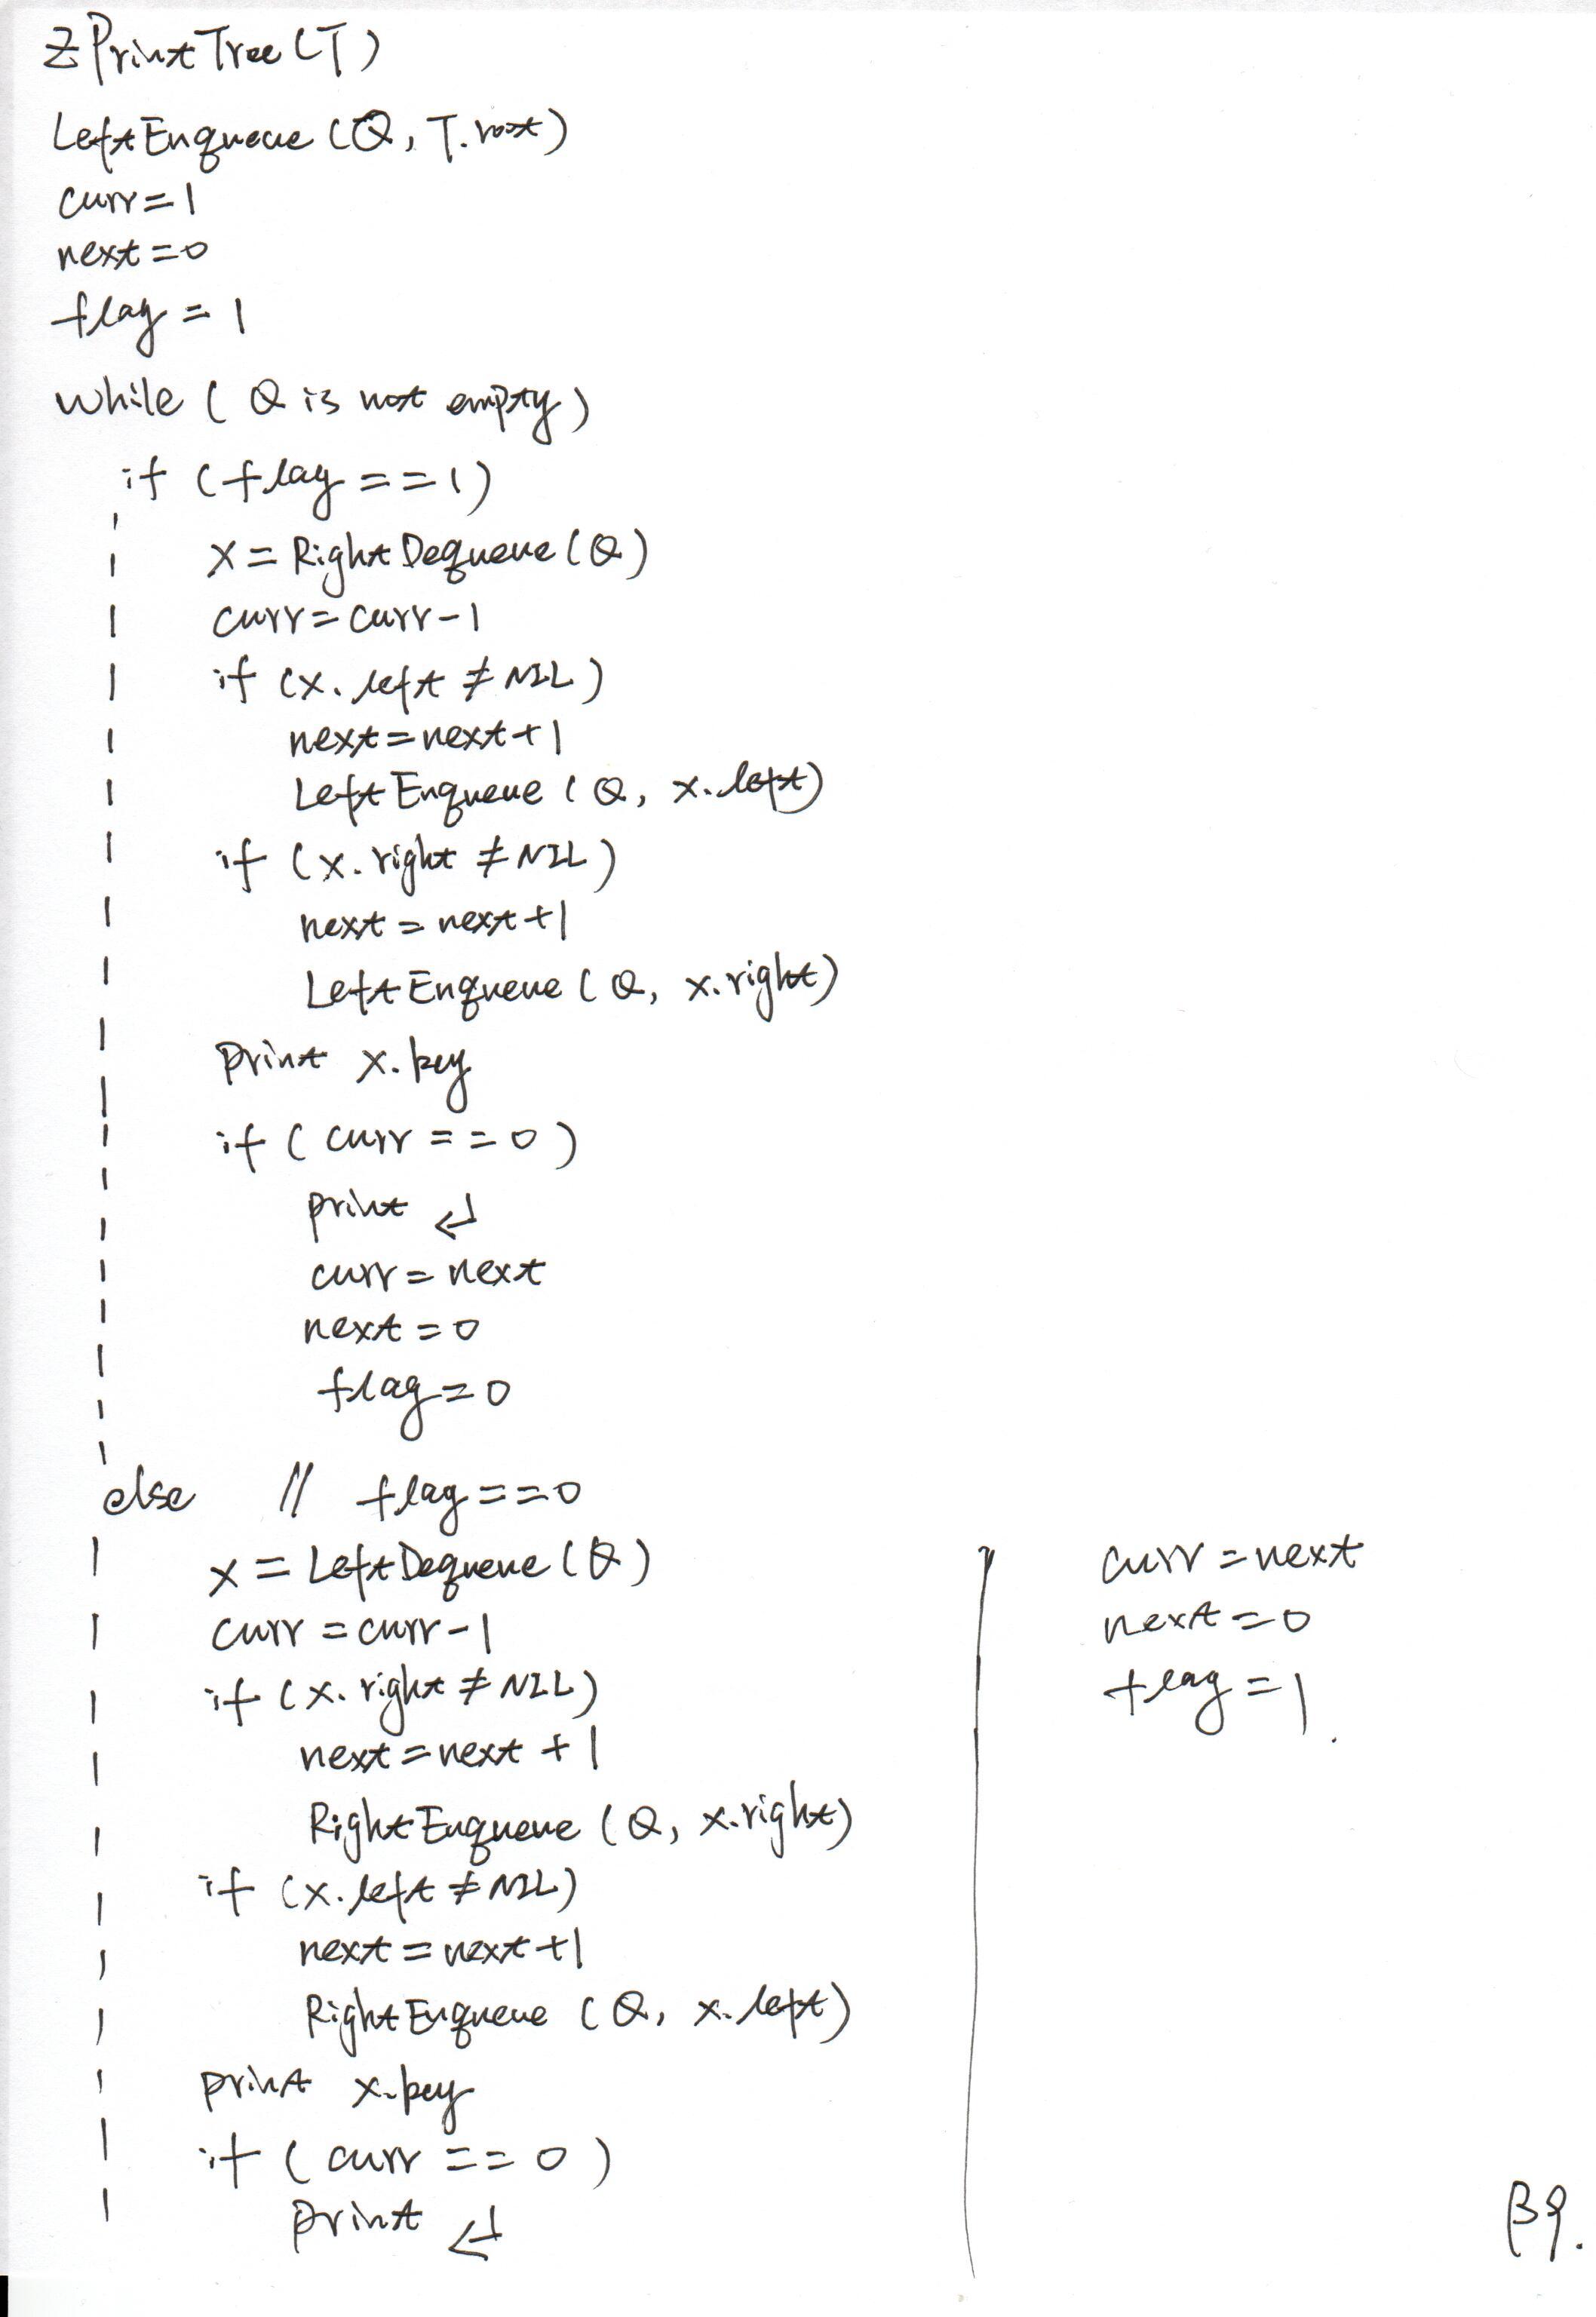 ZPrintTree(T)
LeftEnqueue(Q, T.root)
curr=1
next=0
flag=1
while (Q is not empty)
if (flag==1)
x=RightDequeue(Q)
curr=curr-1
if (x.left≠NIL)
next=next+1
LeftEnqueue(Q, x.left)
if (x.right≠NIL)
next=next+1
LeftEnqueue(Q, x.right)
print x.key
if (curr==0)
print ↵
curr=next
next=0
flag=0
else // flag==0
x=LeftDequeue(Q)
curr=curr-1
if (x.right≠NIL)
next=next+1
RightEnqueue(Q, x.right)
if (x.left≠NIL)
next=next+1
RightEnqueue(Q, x.left)
print x.key
if (curr==0)
print ↵
curr=next
next=0
flag=1.